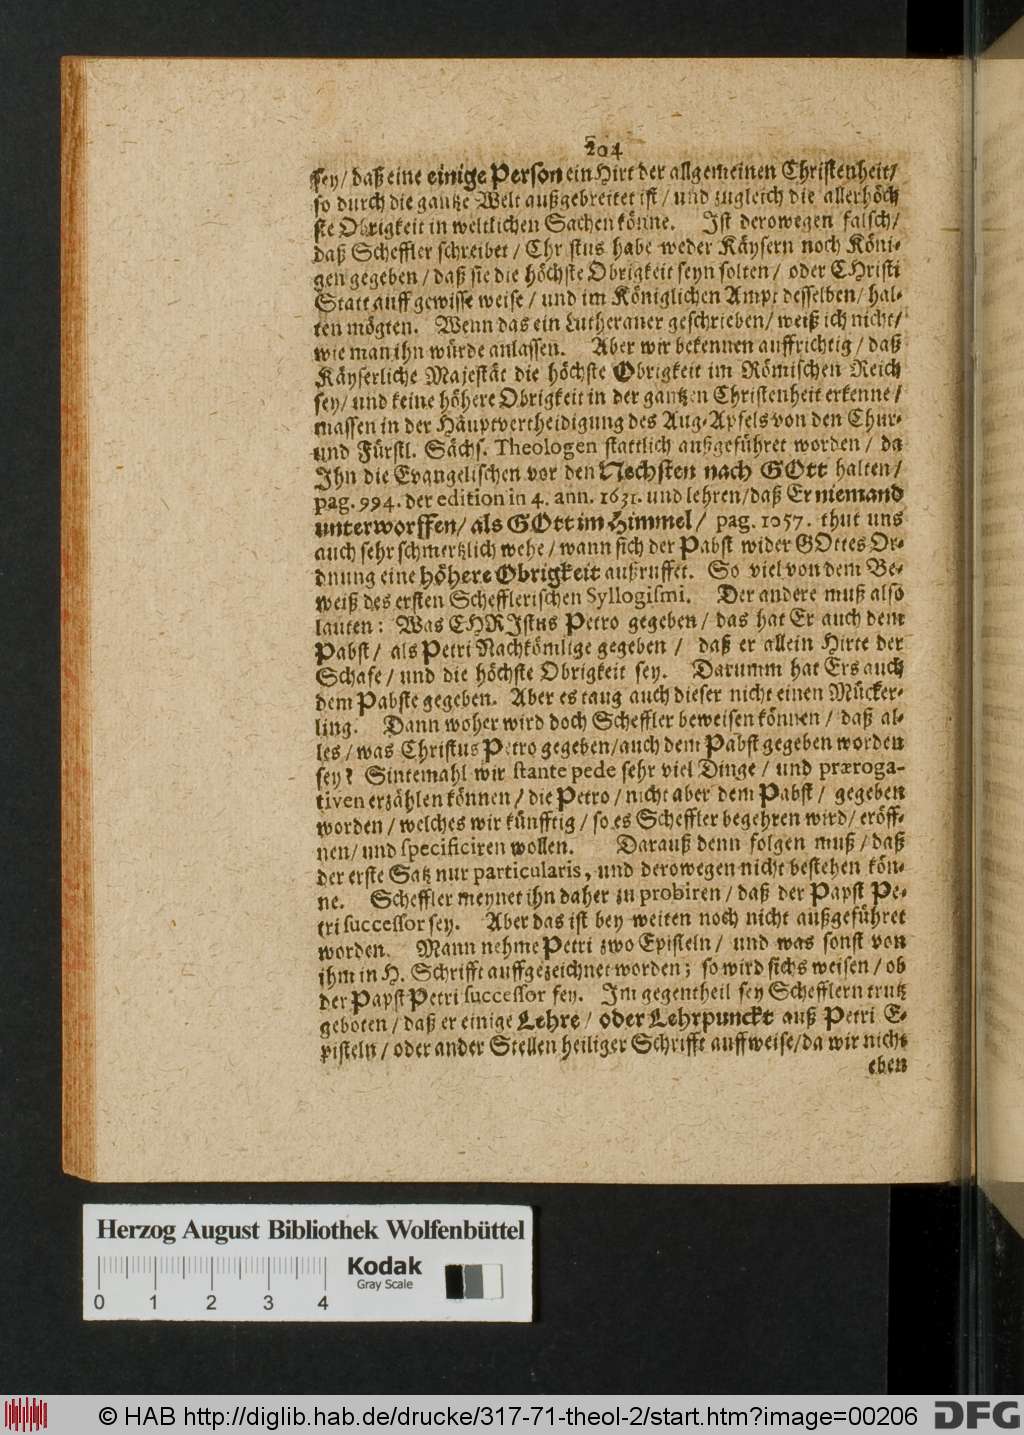 204
sey/ daß eine einige Person ein Hirt der allgemeinen Christenheit/
so durch die gantze Welt außgebreitet ist / und zugleich die allerhöch
ste Obrigkeit in weltlichen Sachen könne. Ist derowegen falsch/
daß Scheffler schreibet / Chr stus habe weder Käysern noch Köni-
gen gegeben / daß sie die höchste Obrigkeit seyn solten / oder CHristi
Statt auff gewisse weise / und im Königlichen Ampt desselben / hal-
ten mögten. Wenn das ein Lutheraner geschrieben / weiß ich nicht/
wie man ihn würde anlassen. Aber wir bekennen auffrichtig / daß
Käyserliche Majestät die höchste Obrigkeit im Römischen Reich
sey/ und keine höhere Obrigkeit in der gantzen Christenheit erkenne /
massen in der Häuptvertheidigung des Aug-Apfels von den Chur-
und Fürstl. Sächs. Theologen stattlich außgeführet worden / da
Ihn die Evangelischen vor den Nechsten nach GOtt halten /
pag. 994. der edition in 4. ann. 1631. und lehren/daß Er niemand
unterworffen/ als GOtt im Himmel / pag. 1057. thut uns
auch sehr schmertzlich wehe / wann sich der Pabst wider GOttes Or-
dnung eine höhere Obrigkeit außruffet. So viel von dem Be-
weiß des ersten Schefflerischen Syllogismi. Der andere muß also
lauten: Was CHRIstus Petro gegeben / das hat Er auch dem
Pabst / als Petri Nachkömlige gegeben / daß er allein Hirte der
Schafe / und die höchste Obrigkeit sey. Darumm hat Ers auch
dem Pabste gegeben. Aber es taug auch dieser nicht einen Mücker-
ling. Dann woher wird doch Scheffler beweisen können / daß al-
les / was Christus Petro gegeben/auch dem Pabst gegeben worden
sey? Sintemahl wir stante pede sehr viel Dinge / und præroga-
tiven erzählen können / die Petro / nicht aber dem Pabst / gegeben
worden / welches wir künfftig / so es Scheffler begehren wird/ eröff-
nen/ und specificiren wollen. Darauß denn folgen muß / daß
der erste Satz nur particularis, und derowegen nicht bestehen kön-
ne. Scheffler meynet ihn daher zu probiren / daß der Papst Pe-
tri successor sey. Aber das ist bey weiten noch nicht außgeführet
worden. Mann nehme Petri zwo Episteln / und was sonst von
ihm in H. Schrifft auffgezeichnet worden; so wird sichs weisen / ob
der Papst Petri successor sey. Im gegentheil sey Schefflern trutz
geboten / daß er einige Lehre / oder Lehrpunckt auß Petri E-
pisteln / oder ander Stellen heiliger Schrifft auffweise/da wir nicht
eben
Herzog August Bibliothek Wolfenbüttel
Kodak
Gray Scale
0 1 2 3 4
© HAB http://diglib.hab.de/drucke/317-71-theol-2/start.htm?image=00206
DFG